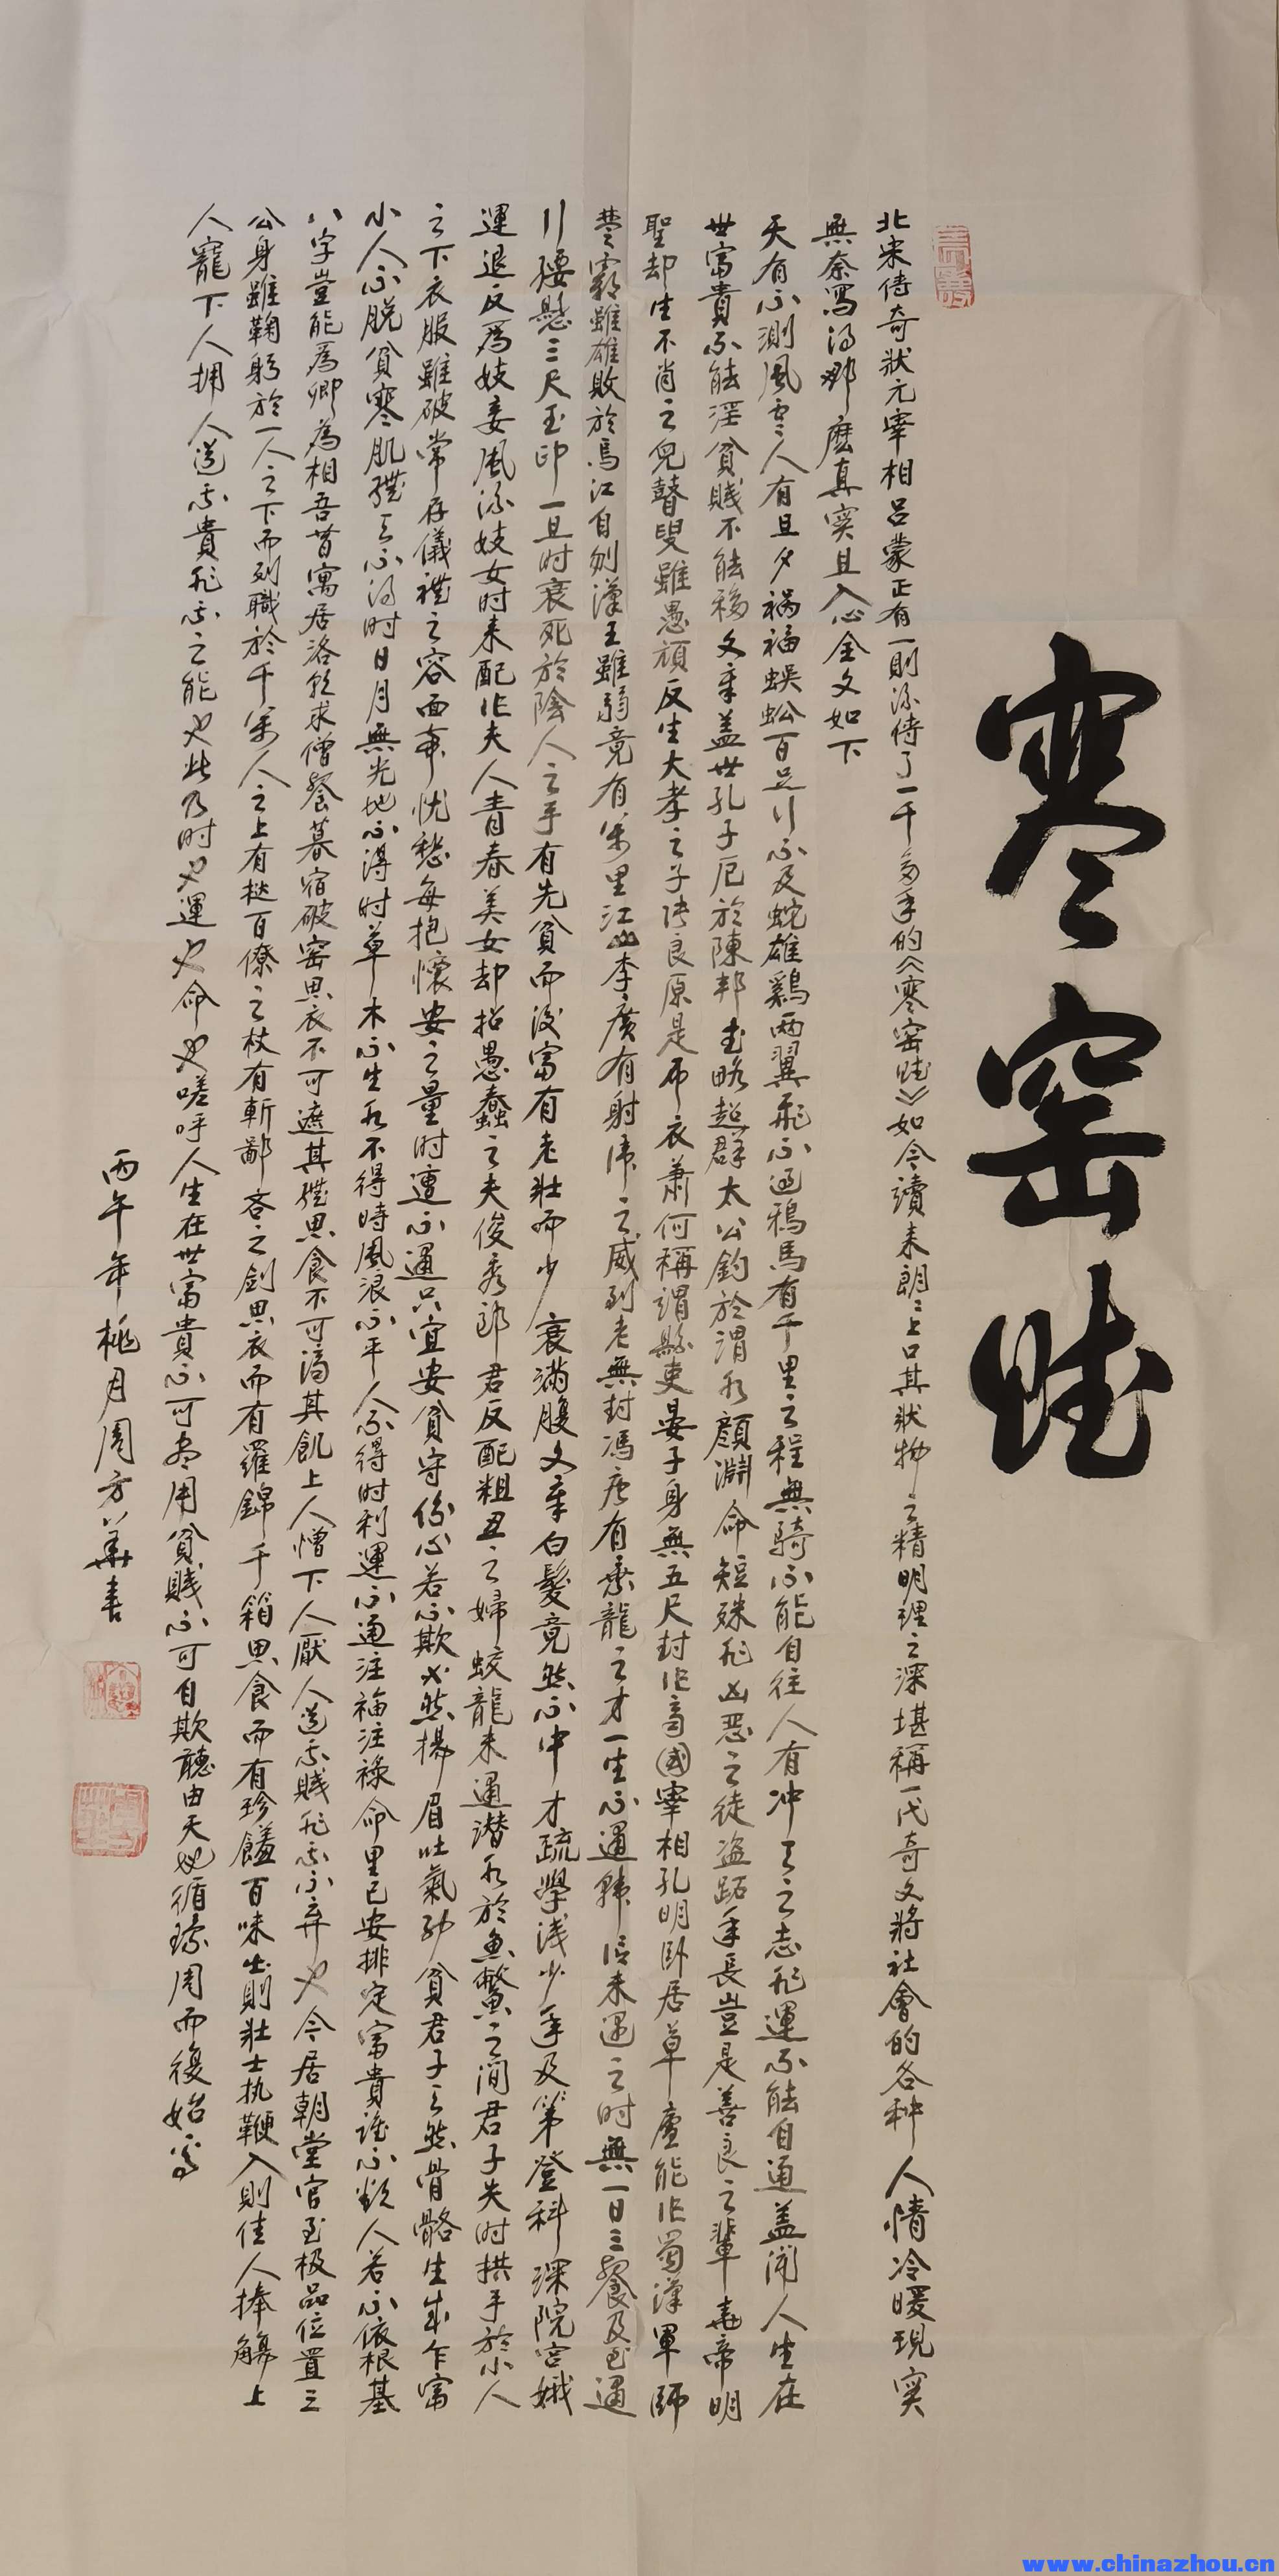 寒窑赋
北宋傳奇狀元宰相呂蒙正有一則流傳了一千多年的《寒窑赋》如今讀来朗々上口其狀物之精明理之深堪稱一代奇文將社會的各种人情冷暖現实
無奈寫得那麽真实且入心全文如下
天有不測風雲人有旦夕祸福蜈蚣百足行不及蛇雄鷄兩翼飛不過鴉馬有千里之程無騎不能自往人有冲天之志非運不能自通盖闻人生在
世富貴不能淫貧賤不能移文章盖世孔子厄於陳邦武略超群太公釣於渭水顏淵命短殊非凶恶之徒盗跖年長豈是善良之輩堯帝明
聖却生不肖之兒瞽叟雖愚頑反生大孝之子张良原是布衣蕭何稱謂縣吏晏子身無五尺封作齊國宰相孔明卧居草廬能作蜀漢軍師
楚霸雖雄敗於烏江自刎漢王雖弱竟有萬里江山李廣有射虎之威到老無封馮唐有乘龍之才一生不遇韩信未遇之时無一日三餐及至遇
行腰懸三尺玉印一旦时衰死於陰人之手有先貧而後富有老壮而少衰滿腹文章白髮竟然不中才疏學浅少年及第登科深院宫娥
運退反為妓妾風流妓女时来配作夫人青春美女却招愚蠢之夫俊秀郎君反配粗丑之婦蛟龍未遇潜水於魚鱉之间君子失时拱手於小人
之下衣服雖破常存儀禮之容面带忧愁每抱懷安之量时遭不遇只宜安貧守份心若不欺必然揚眉吐氣初貧君子天然骨骼生成乍富
小人不脱貧寒肌體天不得时日月無光地不得时草木不生水不得時風浪不平人不得时利運不通注福注禄命里已安排定富貴誰不欲人若不依根基
八字豈能為卿為相吾昔寓居洛阳朝求僧餐暮宿破窑思衣不可遮其體思食不可濟其飢上人憎下人厭人道我賤非我不弃也今居朝堂官至极品位置三
公身雖鞠躬於一人之下而列職於千萬人之上有挞百僚之杖有斬鄙吝之劍思衣而有羅錦千箱思食而有珍饈百味出則壮士执鞭入則佳人捧觞上
人寵下人拥人道我貴非我之能也此乃时也運也命也嗟呼人生在世富貴不可尽用貧賤不可自欺聽由天地循環周而復始焉
丙午年桃月周方華書
www.chinazhou.cn